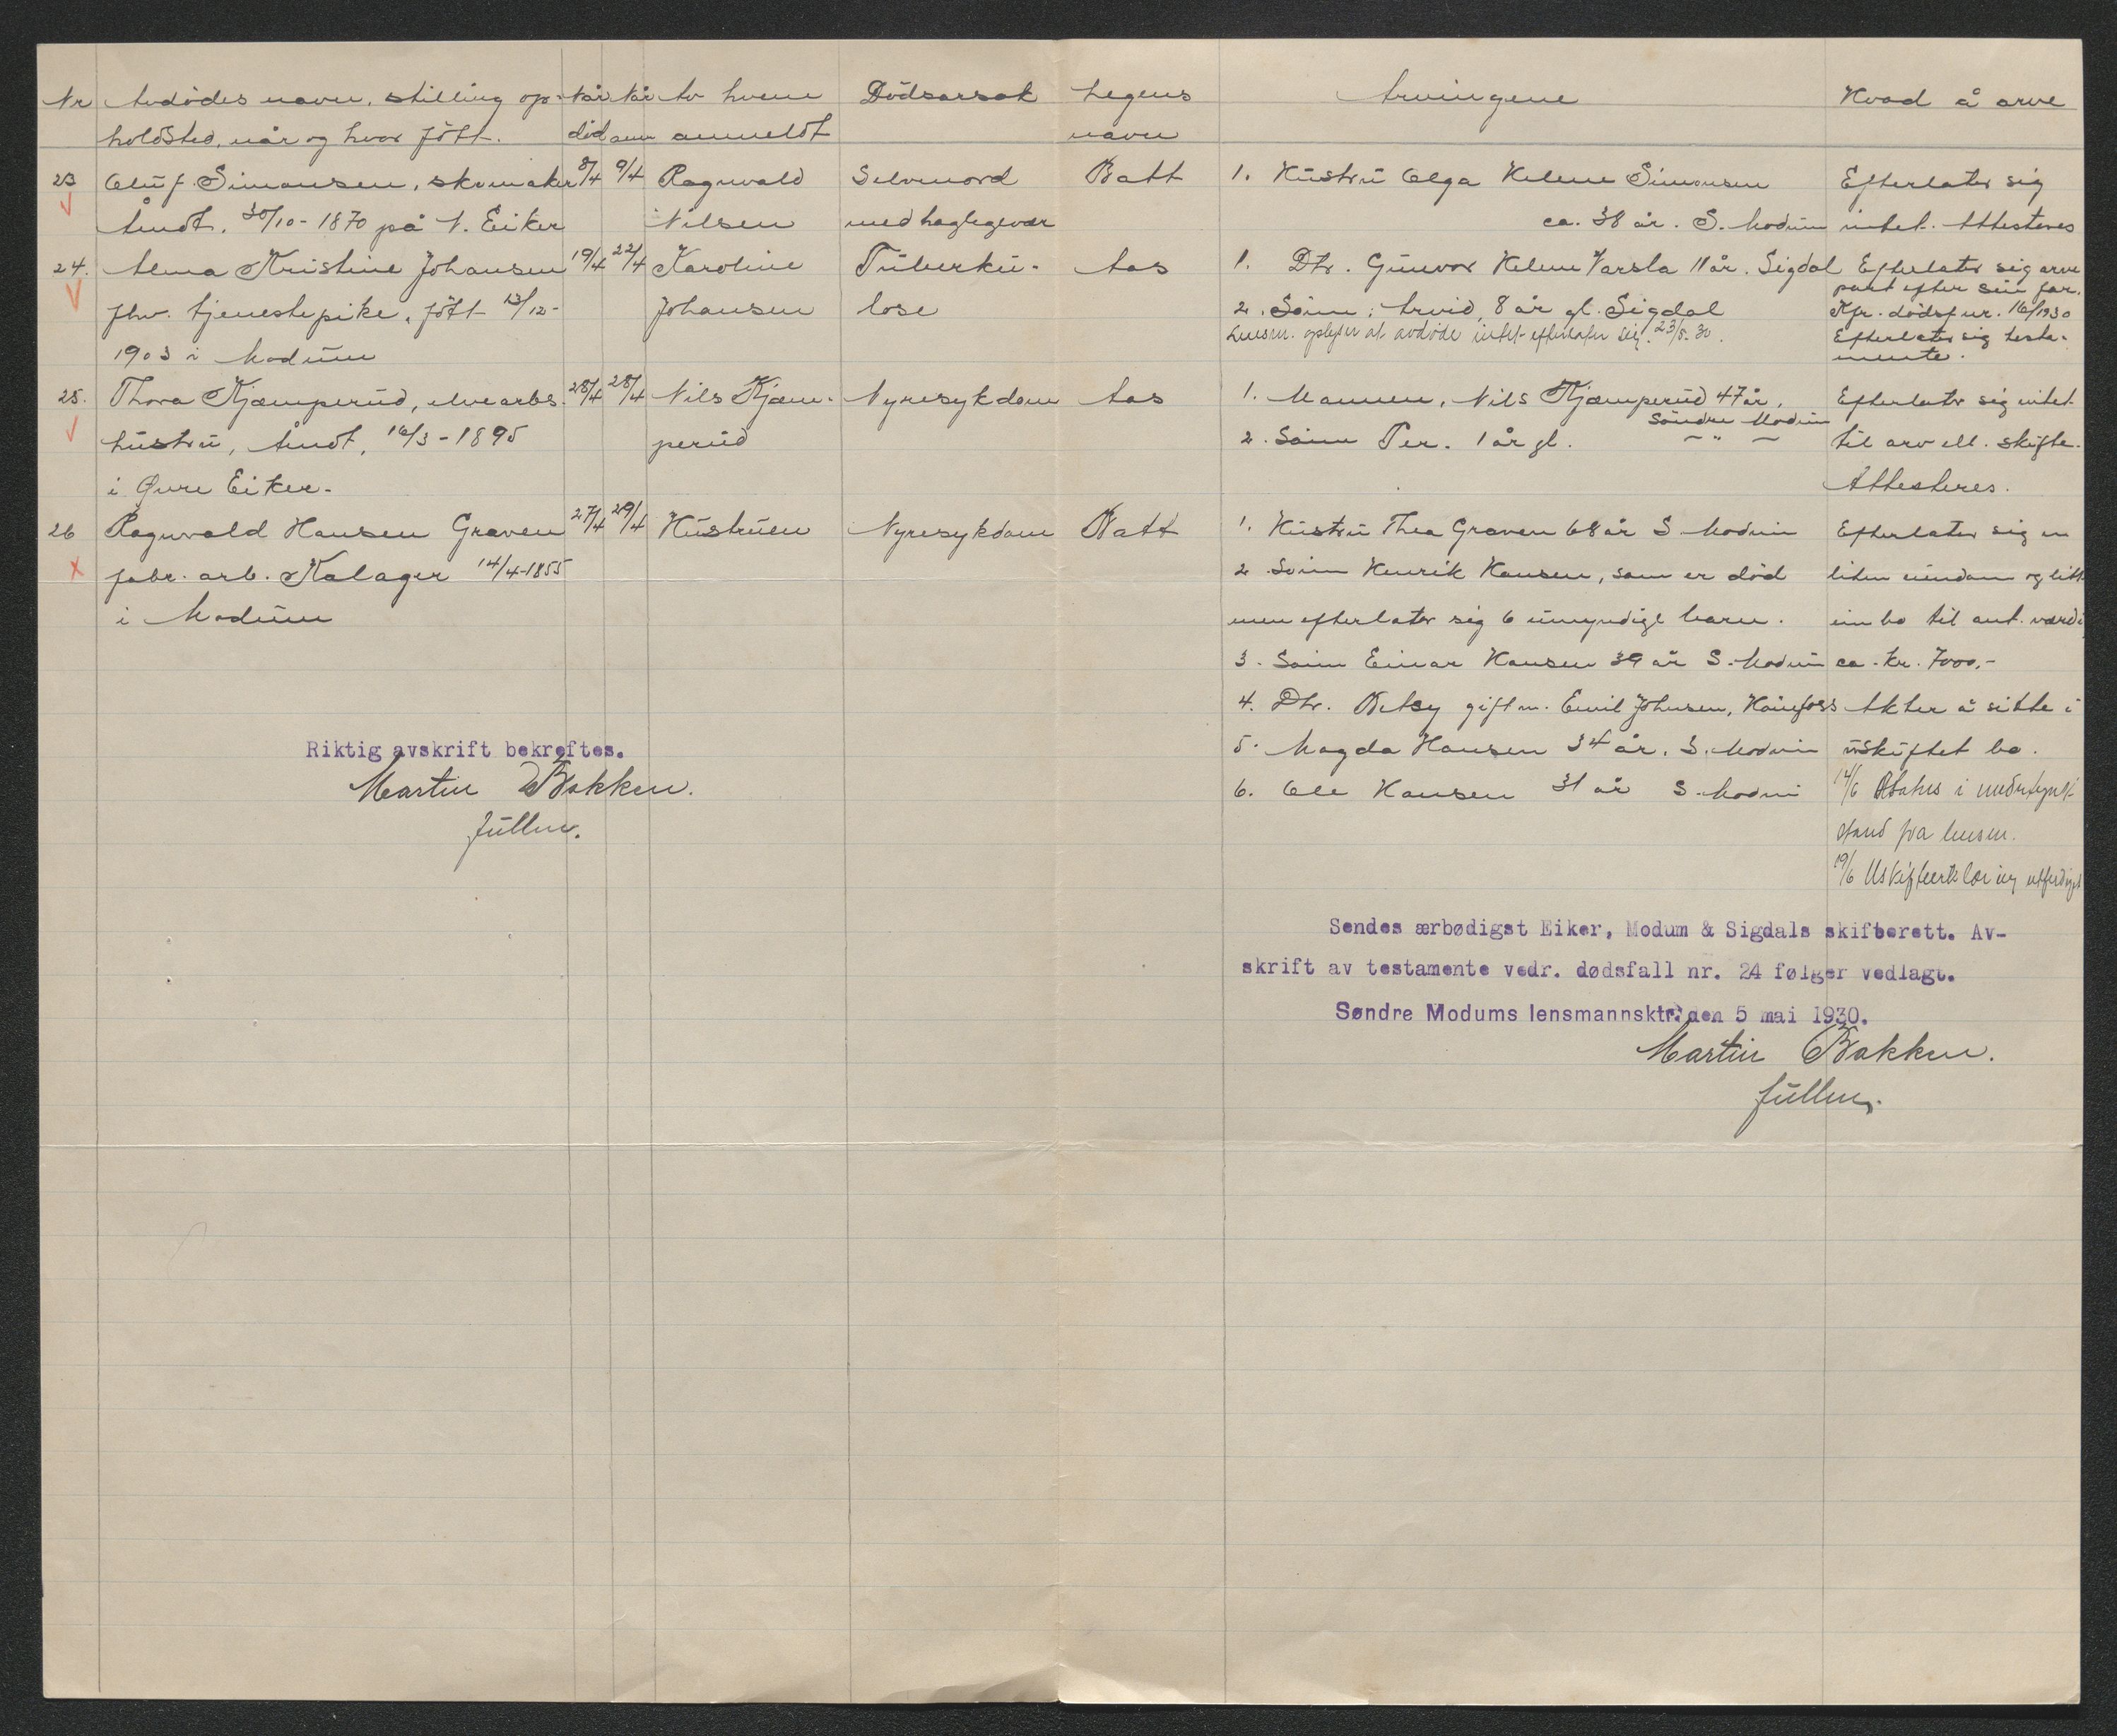 Nr Avdödes navn, stilling op- Når Når Av hvem Dödsarsak Legens Arvingene Hvad å arve
holdsted, når og hvor fött. död anm anmeldt navn
23 Oluf Simonsen, skomaker 8/4 9/4 Ragnvald Selvmord Batt 1. Hustru Olga Helene Simonsen Efterlater sig
Åmot. 30/10-1870 på N. Eiker Nilsen med haglegevær ca. 38 år. S. Modum intet. Attesteres
24. Alma Kristine Johansen 19/4 22/4 Karoline Tuberku- Aas 1. Dtr. Gunvor Helene Varsla 11 år. Sigdal Efterlater sig arve
part efter sin far.
fhv. tjenestepike, fött 13/12- Johansen lose 2. Sönn: Arvid, 8 år gl. Sigdal Kfr. dödsf nr. 16/1930
Lensm. oplyser at avdöde intet efterlater sig. 23/5. 30. Efterlater sig testa-
1903 i Modum mente.
25. Thora Kjæmperud, elvearbs. 28/4 28/4 Nils Kjæm- Nyresykdom Aas 1. Mannen, Nils Kjæmperud 47 år, Efterlater sig intet
Söndre Modum
hustru, Åmot, 16/3-1895 perud 2. Sönn Per. 1 år gl. - " - til arv ell. skifte.
i Övre Eiker. Attesteres.
26 Ragnvald Hansen Graven 27/4 29/4 Hustruen Nyresykdom Batt 1. Hustru Thea Graven 68 år S. Modum Efterlater sig en
fabr. arb. Kalager 14/4-1855 2. Sönn Henrik Hansen, som er död liten eiendom og litt
i Modum men efterlater sig 6 umyndige barn. innbo til ant. verdi
3. Sönn Einar Hansen 39 år S. Modum ca. kr. 7000,-
4. Dtr. Betsy gift m. Emil Johnsen, Hönefoss Akter å sitte i
5. Magda Hansen 34 år, S. Modum uskiftet bo.
6. Ole Hansen 31 år S. Modum 14/6 Avholdes i
stand fra lensm.
19/6 Uskifteerklæring utferdiget
Riktig avskrift bekreftes.
Martin Bakken.
fullm.
Sendes ærbødigst Eiker, Modum & Sigdals skifterett. Av-
skrift av testamente vedr. dødsfall nr. 24 følger vedlagt.
Søndre Modums lensmannsktr. den 5 mai 1930.
Martin Bakken.
fullm.